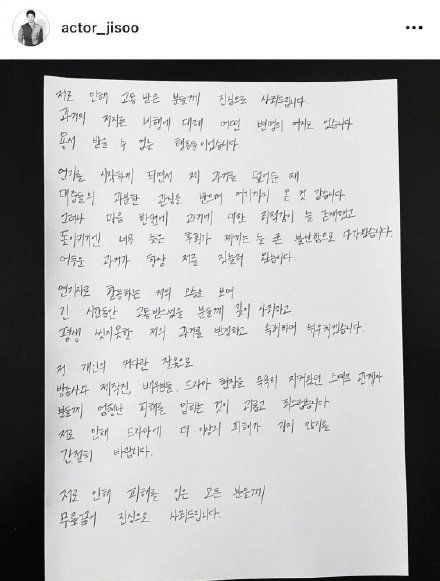 actor_jisoo
저로 인해 고통 받은 분들께 진심으로 사죄드립니다
과거의 저지른 비행에 대해 어떤 변명의 여지도 없습니다.
용서 받을 수 없는 행동들이었습니다.
연기를 시작하게 되면서 제 과거를 덮어둔 채
대중들의 과분한 관심을 받으며 여기까지 온 것 같습니다
그러나 마음 한편에 과거에 대한 죄책감이 늘 존재했고
돌이키기엔 너무 늦은 후회가 제게는 늘 큰 불안함으로 다가왔습니다.
어두운 과거가 항상 저를 짓눌러 왔습니다.
연기자로 활동하는 저의 모습을 보며
긴 시간동안 고통받으셨을 분들께 깊이 사죄하고
평생 씻지못할 저의 과거를 반성하고 속죄하며 뉘우치겠습니다.
저 개인의 커다란 잘못으로
방송사와 제작진, 배우들, 드라마 현장을 묵묵히 지켜왔던 스태프 관계자
분들께 엄청난 피해를 입히는 것이 괴롭고 죄스럽습니다
저로 인해 드라마에 더 이상의 피해가 가지 않기를
간절히 바랍니다.
저로 인해 피해를 입은 모든 분들께
무릎꿇어 진심으로 사죄드립니다.